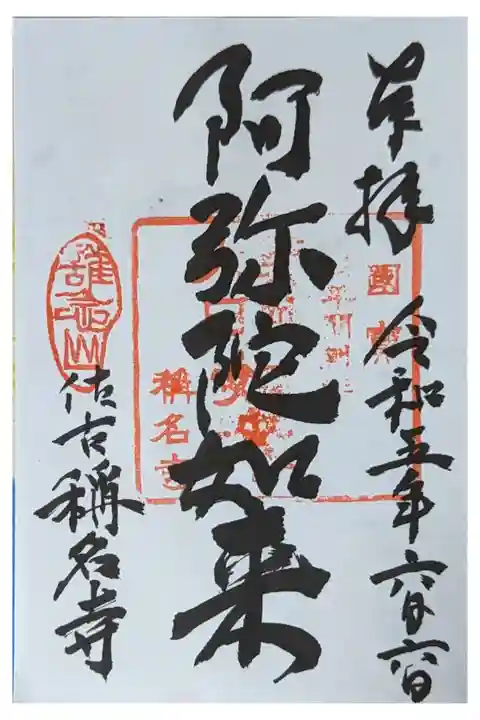 奉拝
令和五年六月六日
阿弥陀如来
佐古稱名寺
國宝
稱名寺